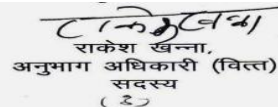 राकेश खन्ना,
अनुभाग अधिकारी (वित्त)
सदस्य
(3)